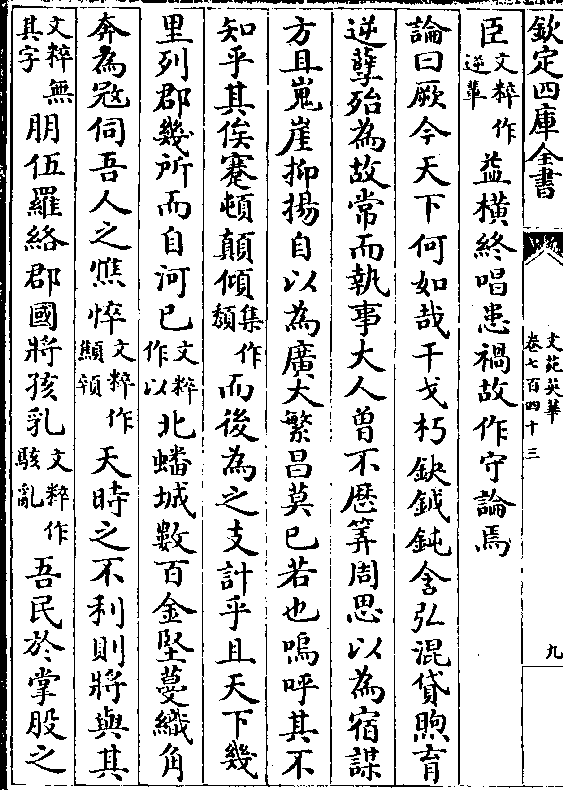 欽定四庫全書
文苑英華
卷七百四十三
九
臣文粹作逆輩益橫終唱患禍故作守論焉
論曰厥今天下何如哉干戈朽鈇鉞鈍含弘混貸煦育
逆孽殆為故常而執事大人曾不歴筭周思以為宿謀
方且嵬崖抑揚自以為廣大繁昌莫已若也嗚呼其不
知乎其俟蹇頓顛傾集作頽而後為之支計乎且天下幾
里列郡幾所而自河已文粹作以北蟠城數百金堅蔓織角
奔為冦伺吾人之憔悴文粹作顯頷天時之不利則將與其
文粹無其字朋伍羅絡郡國將孩乳文粹作駭亂吾民於掌股之